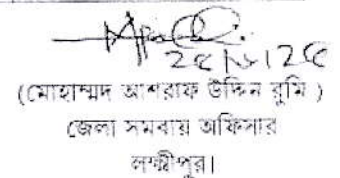 (মোহাম্মদ আশরাফ উদ্দিন রুমি )
জেলা সমবায় অফিসার
লক্ষ্মীপুর।